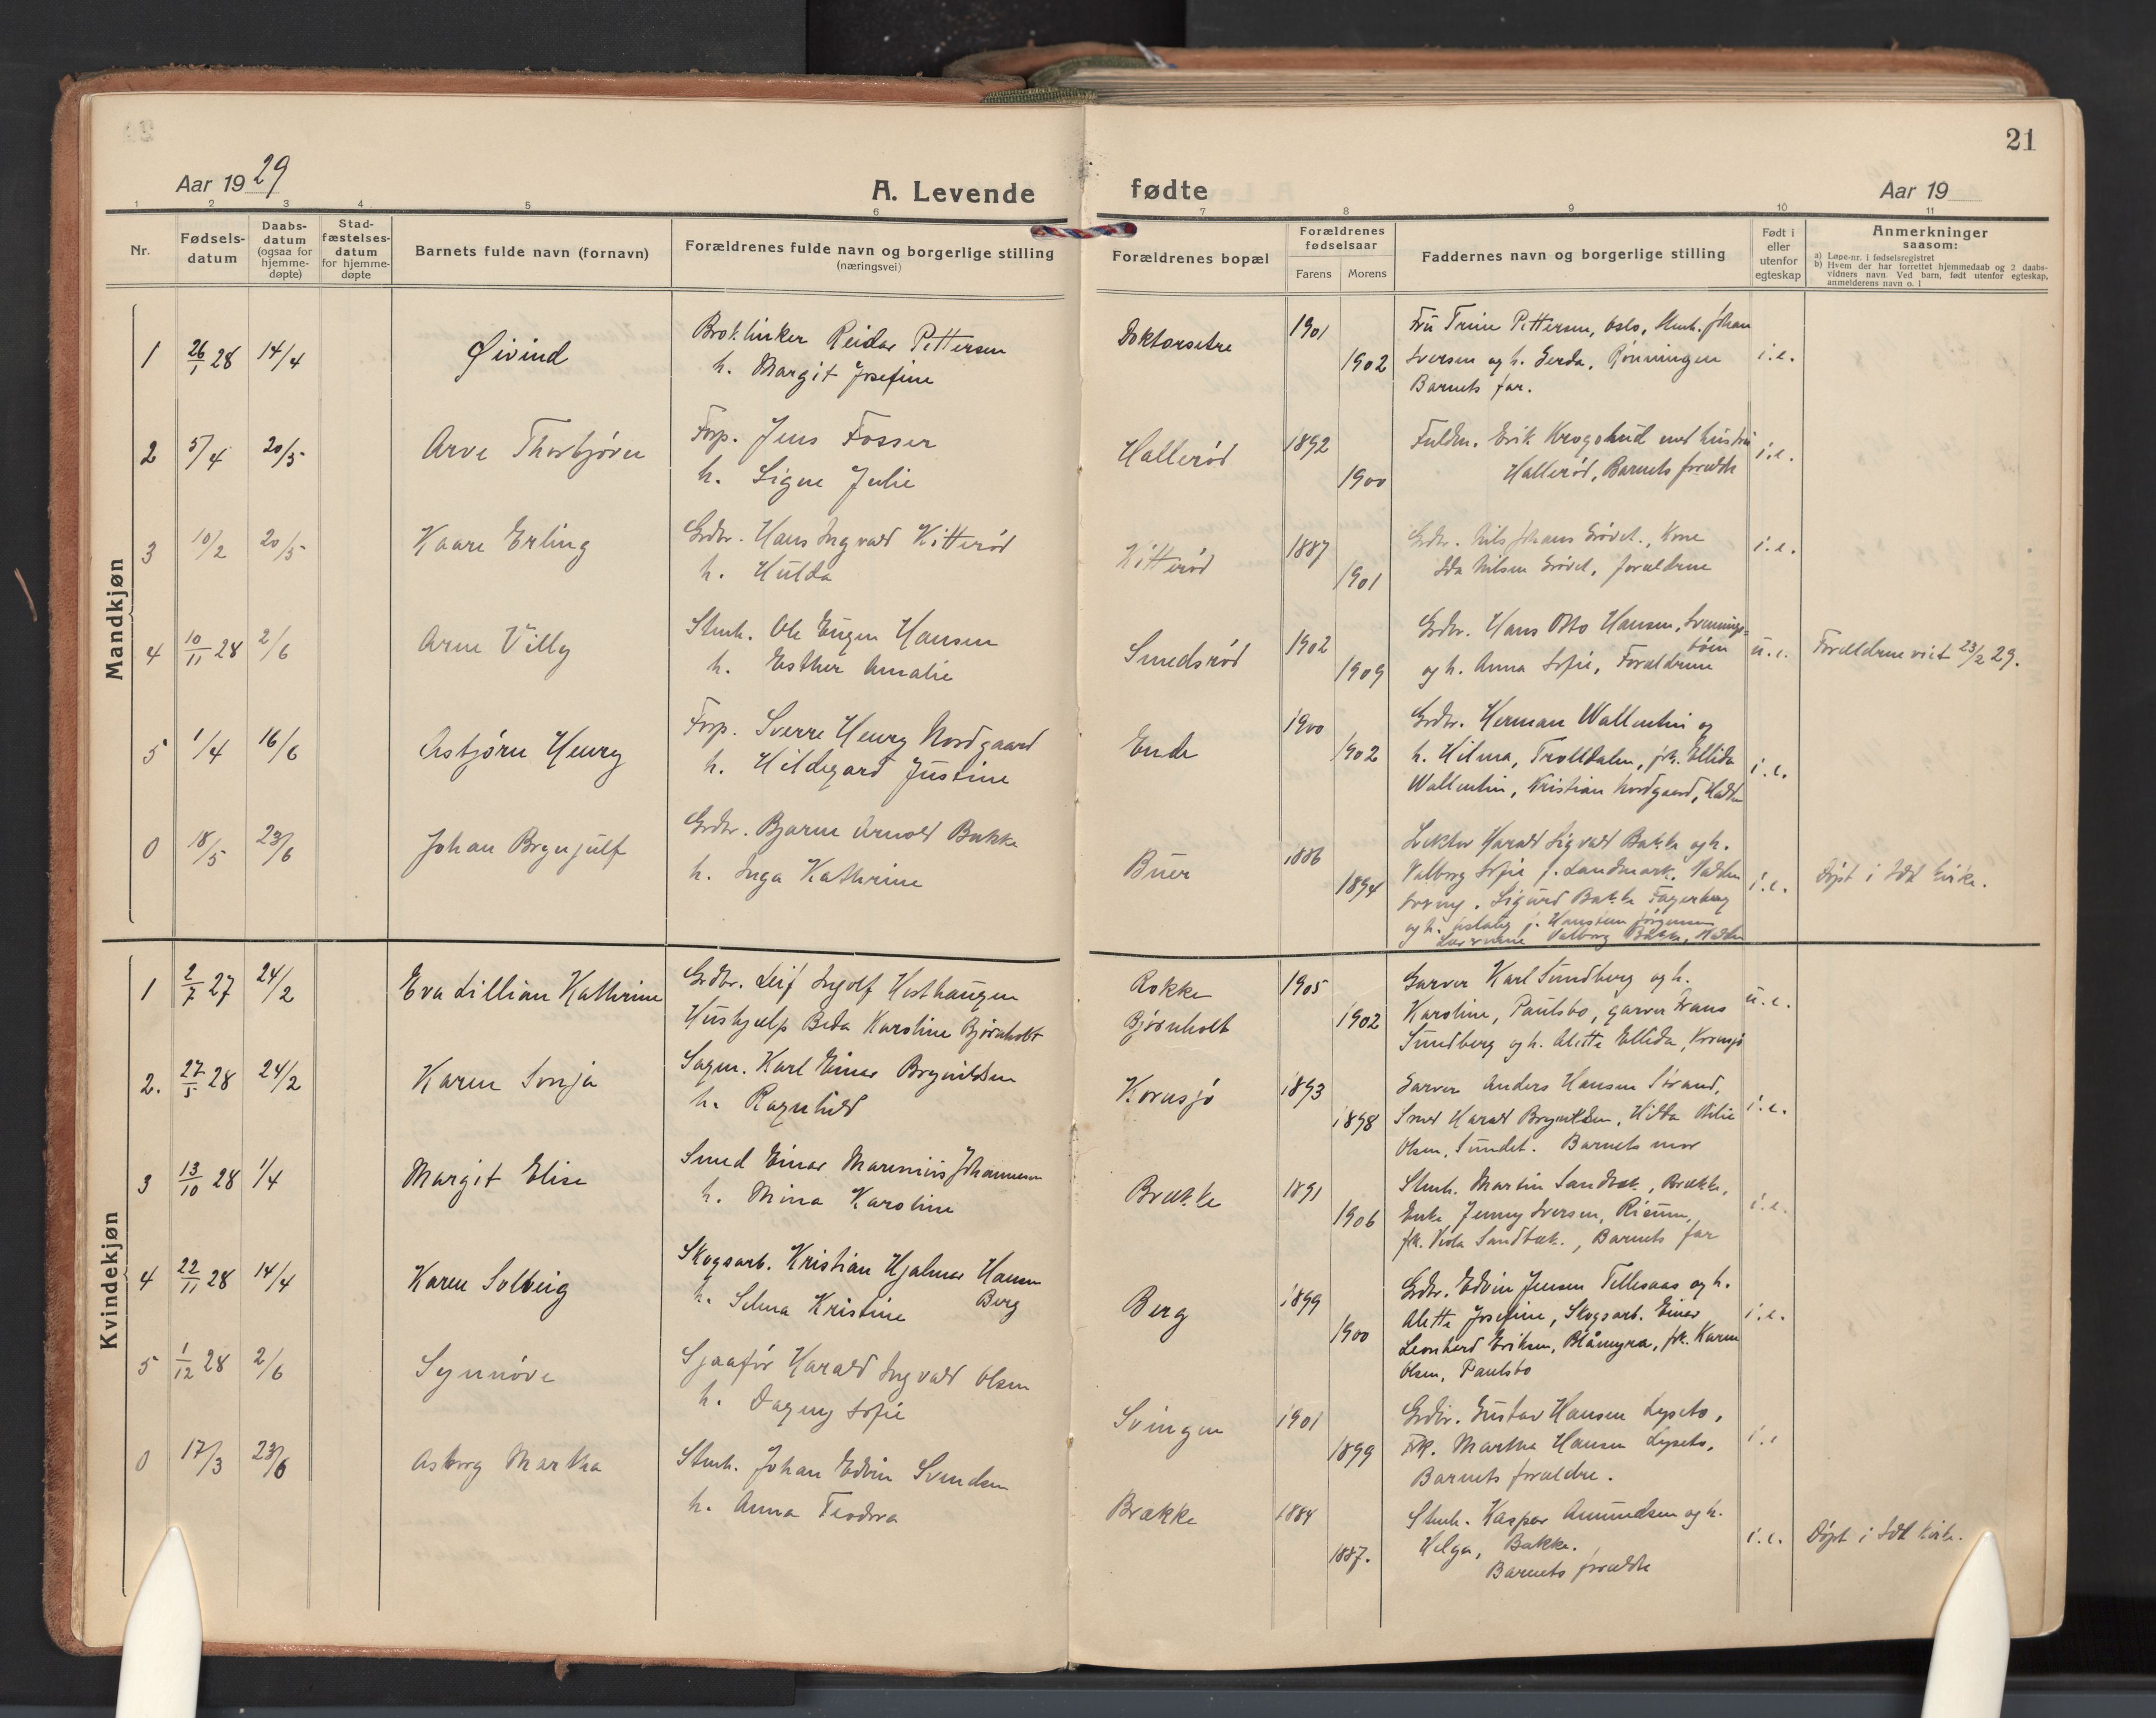 21
Aar 1929
A. Levende
fødte
Aar 19
1 2 3 4 5 6 7 8 9 10 11
Nr.
Fødsels-
datum
Daabs-
datum
(ogsaa for
hjemme-
døpte)
Stad-
fæstelses-
datum
for hjemme-
døpte
Barnets fulde navn (fornavn)
Forældrenes fulde navn og borgerlige stilling
(næringsvei)
Forældrenes bopæl
Forældrenes
fødselsaar
Farens
Morens
Faddernes navn og borgerlige stilling
Født i
eller
utenfor
egteskap
Anmerkninger
saasom:
a) Løpe-nr. i fødselsregistret
b) Hvem der har forrettet hjemmedaab og 2 daabs-
vidners navn. Ved barn, født utenfor egteskap,
anmelderens navn o. l
Mandkjøn
1 26/1 28 14/4 Øivind
Reidar Pettersen
h. Margit Josefine
Doktorsetre 1901 1902
Fru Trine Pettersen, Oslo, Stenh. Johan
Iversen og h. Gerda, Rønningen
Barnets far.
i.e.
2 5/4 20/5 Arve Thorbjørn
Forp. Jens Fosser
h. Signe Julie
Hallerød 1892 1900
Fuldm. Erik Krogshud med hustru
Hallerød, Barnets foreldre
i.e.
3 10/2 20/5 Kaare Erling
Grdbr. Hans Ingvald Kitterød
h. Hulda
Kitterød 1887 1901
Grdbr. Nils Johans Kone
Ida Nilsen foreldrene
i.e.
4 10/11 28 2/6 Arne Villy
Stenh. Ole Eugen Hansen
h. Esther Amalie
Smedsrød 1902 1909
Grdbr. Hans Otto Hansen,
og h. Anna Sofie, Foreldrene
u.e.
Foreldrene viet 23/2 29.
5 1/4 16/6 Asbjørn Henry
Forp. Sverre Henry Nordgaard
h. Hildegard Justine
Ende 1900 1902
Grdbr. Herman Wallentin og
h. Hilma, Trolldalen, frk. Ellida
Wallentin, Kristian Nordgaard, Halden
i.e.
0 18/5 23/6 Johan Brynjulf
Grdbr. Bjarne Arnold Bakke
h. Inga Kathrine
Buer 1886 1894
Lektor Harald Sigvald Bakke og h.
Valborg Sofie f. Landmark, Halden
Sigurd Bakke Fagerborg
og h. f. Hanstein Jørgensen
Lærerinne Valborg Bakke, Halden
i.e.
Døpt i Idd kirke.
Kvindekjøn
1 2/7 27 24/2 Eva Lillian Kathrine
Grdbr. Leif Ingolf Holthaugen
Hushjælp Beda Karoline Bjørnholt
Rokke
Bjørnholt
1905 1902
Garver Karl Sundberg og h.
Karoline, Paulsbo, garver Frans
Sundberg og h. Alette Ellida, Kornsjø
u.e.
2. 27/5 28 24/2 Karen Sonja
Sagm. Karl Einar Brynildsen
h. Ragnhild
Kornsjø 1893 1898
Garver Anders Hansen Strand,
Smed Harald Brynildsen, Hilda Otilie
Olsen, Sundet. Barnets mor
i.e.
3 13/10 28 1/4 Margit Elise
Smed Einar Marenius Johannesen
h. Mina Karoline
Brække 1891 1906
Stenh. Martin Sandbæk, Brække,
Enke Jenny Iversen, Risum,
frk. Viola Sandbæk, Barnets far
i.e.
4 22/11 28 14/4 Karen Solveig
Skogsarb. Kristian Hjalmar Hansen
Berg
h. Selma Kristine
Berg 1899 1900
Grdbr. Edvin Jensen Tellesaas og h.
Alette Josefine, Skogsarb. Einar
Leonhard Eriksen, Blåmyra, frk. Karen
Olsen, Paulsbo
i.e.
5 1/12 28 2/6 Synnøve
Sjaafør Harald Ingvald Olsen
h. Dagny Sofie
Svingen 1901 1899
Grdbr. Gustav Hansen Lyseto,
Frk. Martha Hansen Lyseto,
Barnets foreldre.
i.e
0 17/3 23/6 Asborg Martha
Stenh. Johan Edvin Svendsen
h. Anna Teodora
Brække 1884 1887.
Stenh. Kaspar Amundsen og h.
Helga, Bakke.
Barnets foreldre
i.e.
Døpt i Idd kirke.